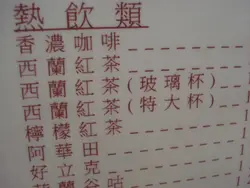 熱飲類
香濃咖啡
西蘭紅茶
西蘭紅茶(玻璃杯)
西蘭紅茶(特大杯)
檸檬紅茶
阿華田
好立克